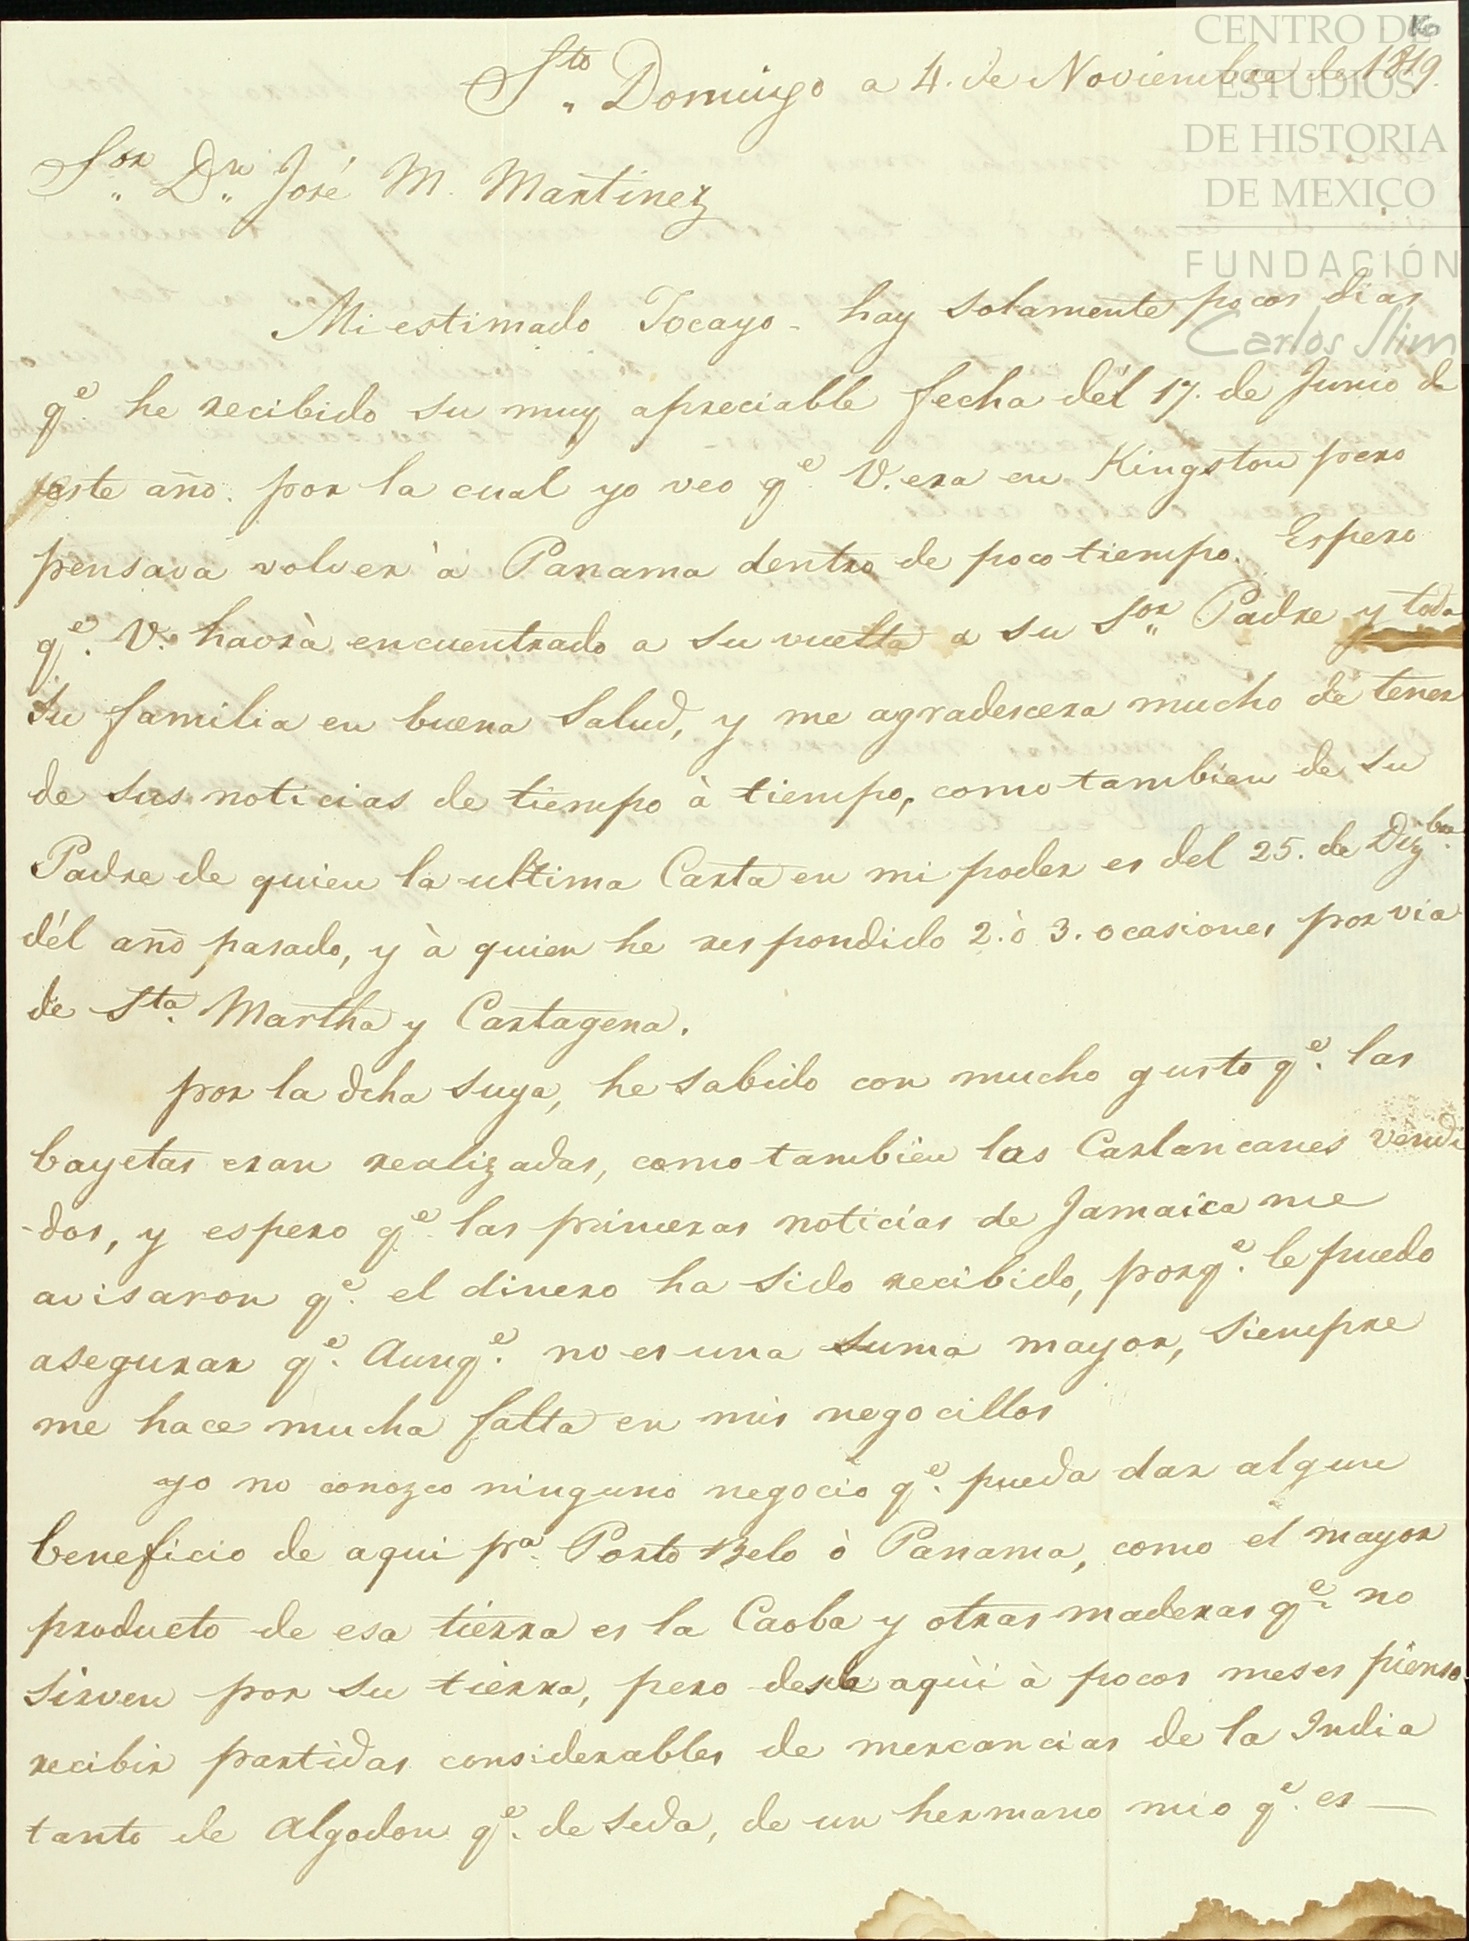 16
CENTRO DE
ESTUDIOS
DE HISTORIA
DE MEXICO
FUNDACIÓN
Carlos Slim
Sto Domingo a 4. de Noviembre de 1819.
Sor Dn José M. Martinez
Mi estimado Tocayo - hay solamente pocos dias
qe. he recibido su muy apreciable fecha dél 17. de Junio de
este año. por la cual yo veo qe. V. era en Kingston pero
pensava volver à Panama dentro de poco tiempo. Espero
qe. V. havrà encuentrado a su vuelta a su Sor Padre y toda
su familia en buena Salud, y me agradescera mucho de tener
de sus noticias de tiempo à tiempo, como tambien de su
Padre de quien la ultima Carta en mi poder es del 25. de Dizbre.
dél año pasado, y à quien he respondido 2. ò 3. ocasiones por via
de Sta. Martha y Cartagena.
por la dcha suya, he sabido con mucho gusto qe. las
bayetas eran realizadas, como tambien las Carlancanes vendi
-dos, y espero qe. las primeras noticias de Jamaica me
avisaron qe. el dinero ha sido recibido, porqe. le puedo
asegurar qe. Aunqe. no es una suma mayor, siempre
me hace mucha falta en mis negocillos
yo no conozco ninguno negocio qe. pueda dar algun
beneficio de aqui pa. Porto Belo ò Panama, como el mayor
producto de esa tierra es la Caoba y otras maderas qe. no
sirven por su tierra, pero desde aqùi à pocos meses pienso
recibir partidas considerables de mercancias de la India
tanto de Algodon qe. de seda, de un hermano mio qe. es —